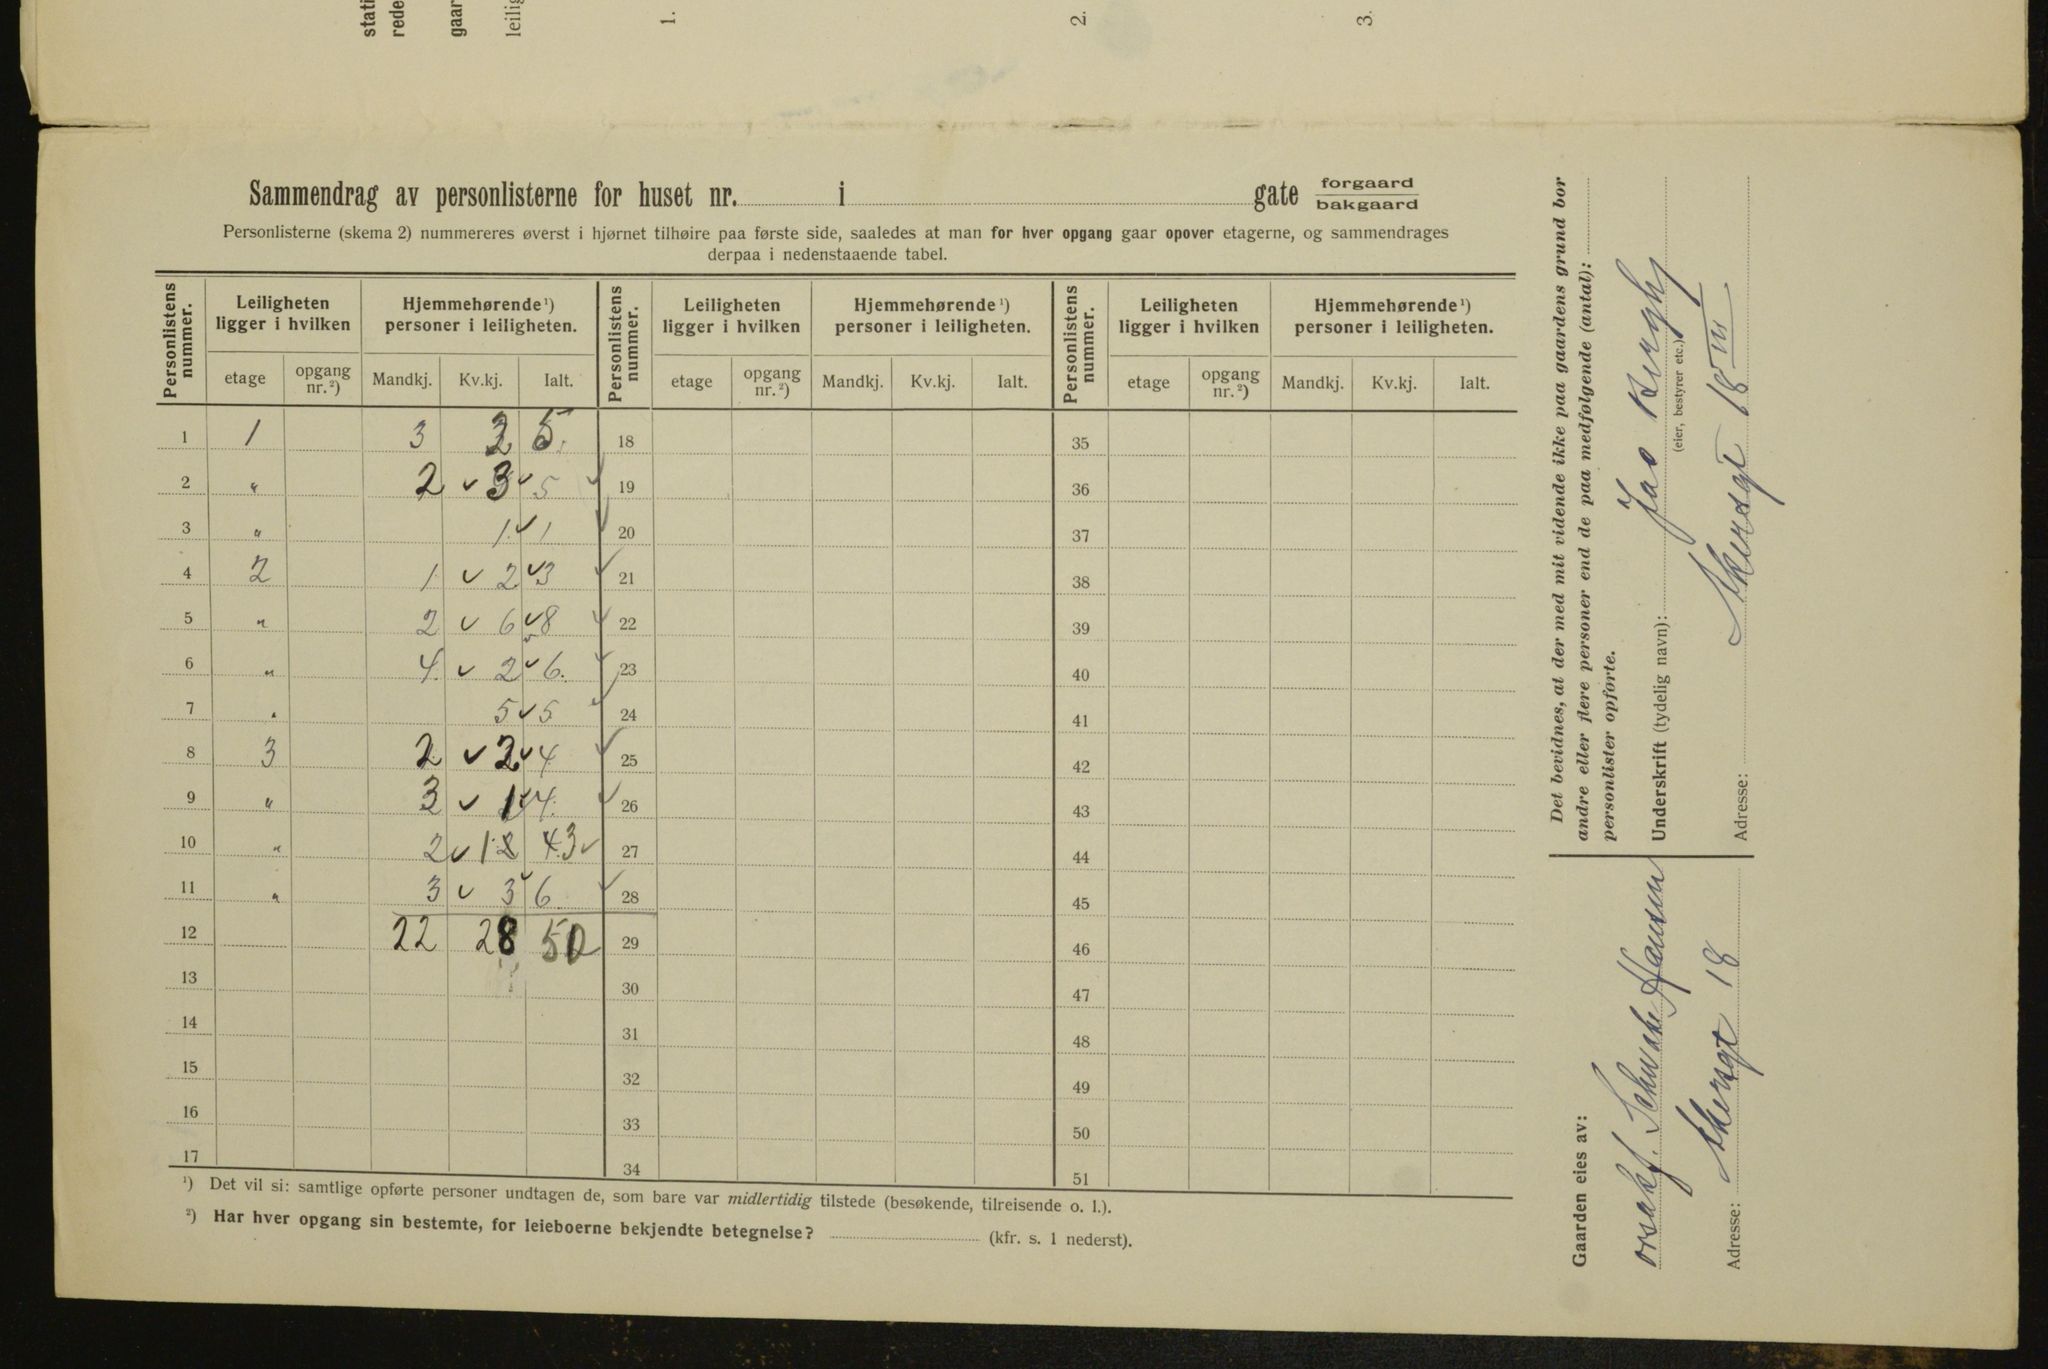 stati
rede
gaar
leilig
1.
2.
3.
Sammendrag av personlisterne for huset nr. i gate forgaard
bakgaard
Personlisterne (skema 2) nummereres øverst i hjørnet tilhøire paa første side, saaledes at man for hver opgang gaar opover etagerne, og sammendrages
derpaa i nedenstaaende tabel.
Personlistens nummer. Leiligheten ligger i hvilken Hjemmehørende ¹) personer i leiligheten. Personlistens nummer. Leiligheten ligger i hvilken Hjemmehørende ¹) personer i leiligheten. Personlistens nummer. Leiligheten ligger i hvilken Hjemmehørende ¹) personer i leiligheten.
etage opgang nr. ²) Mandkj. Kv.kj. Ialt. etage opgang nr. ²) Mandkj. Kv.kj. Ialt. etage opgang nr. ²) Mandkj. Kv.kj. Ialt.
1 1 3 2 5 18 35
2 " 2 ✓ 3 ✓ 5 ✓ 19 36
3 " 1 ✓ 1 ✓ 20 37
4 2 1 ✓ 2 ✓ 3 ✓ 21 38
5 " 2 ✓ 6 ✓ 8 ✓ 22 39
6 " 4 ✓ 2 ✓ 6. ✓ 23 40
7 " 5 ✓ 5 ✓ 24 41
8 3 2 ✓ 2 ✓ 4 ✓ 25 42
9 " 3 ✓ 1 ✓ 4. ✓ 26 43
10 " 2 ✓ 1 2 4 3 ✓ 27 44
11 " 3 ✓ 3 ✓ 6 ✓ 28 45
12 22 28 50 29 46
13 30 47
14 31 48
15 32 49
16 33 50
17 34 51
¹) Det vil si: samtlige opførte personer undtagen de, som bare var midlertidig tilstede (besøkende, tilreisende o. l.).
²) Har hver opgang sin bestemte, for leieboerne bekjendte betegnelse? (kfr. s. 1 nederst).
Det bevidnes, at der med mit vidende ikke paa gaardens grund bor
andre eller flere personer end de paa medfølgende (antal):
personlister opførte.
Underskrift (tydelig navn):
(eier, bestyrer etc.)
Adresse: Akersgt 18 III
Gaarden eies av:
Hansen
Adresse: Akersgt 18